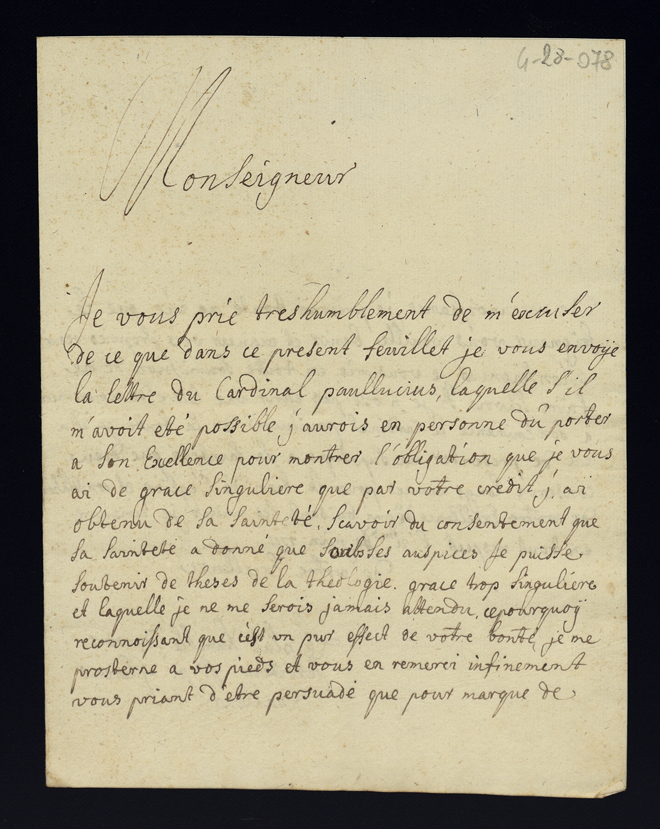 4-28-078
Monseigneur
Je vous prie treshumblement de m'excuser
de ce que dans ce present feuillet je vous envoÿe
la lettre du Cardinal paullucius, laquelle s'il
m'avoit eté possible j'aurois en personne dû porter
a Son Excellence pour montrer l'obligation que je vous
ai de grace singuliere que par votre credit j'ai
obtenu de sa sainteté, scavoir du consentement que
sa sainteté a donné que soubs ses auspices je puisse
soutenir de theses de la theologie. grace trop singuliere
et laquelle je ne me serois jamais attendu, cepourquoÿ
reconnoissant que c'est un pur effect de votre bonté, je me
prosterne a vos pieds et vous en remerci infinement
vous priant d'etre persuadé que pour marque de